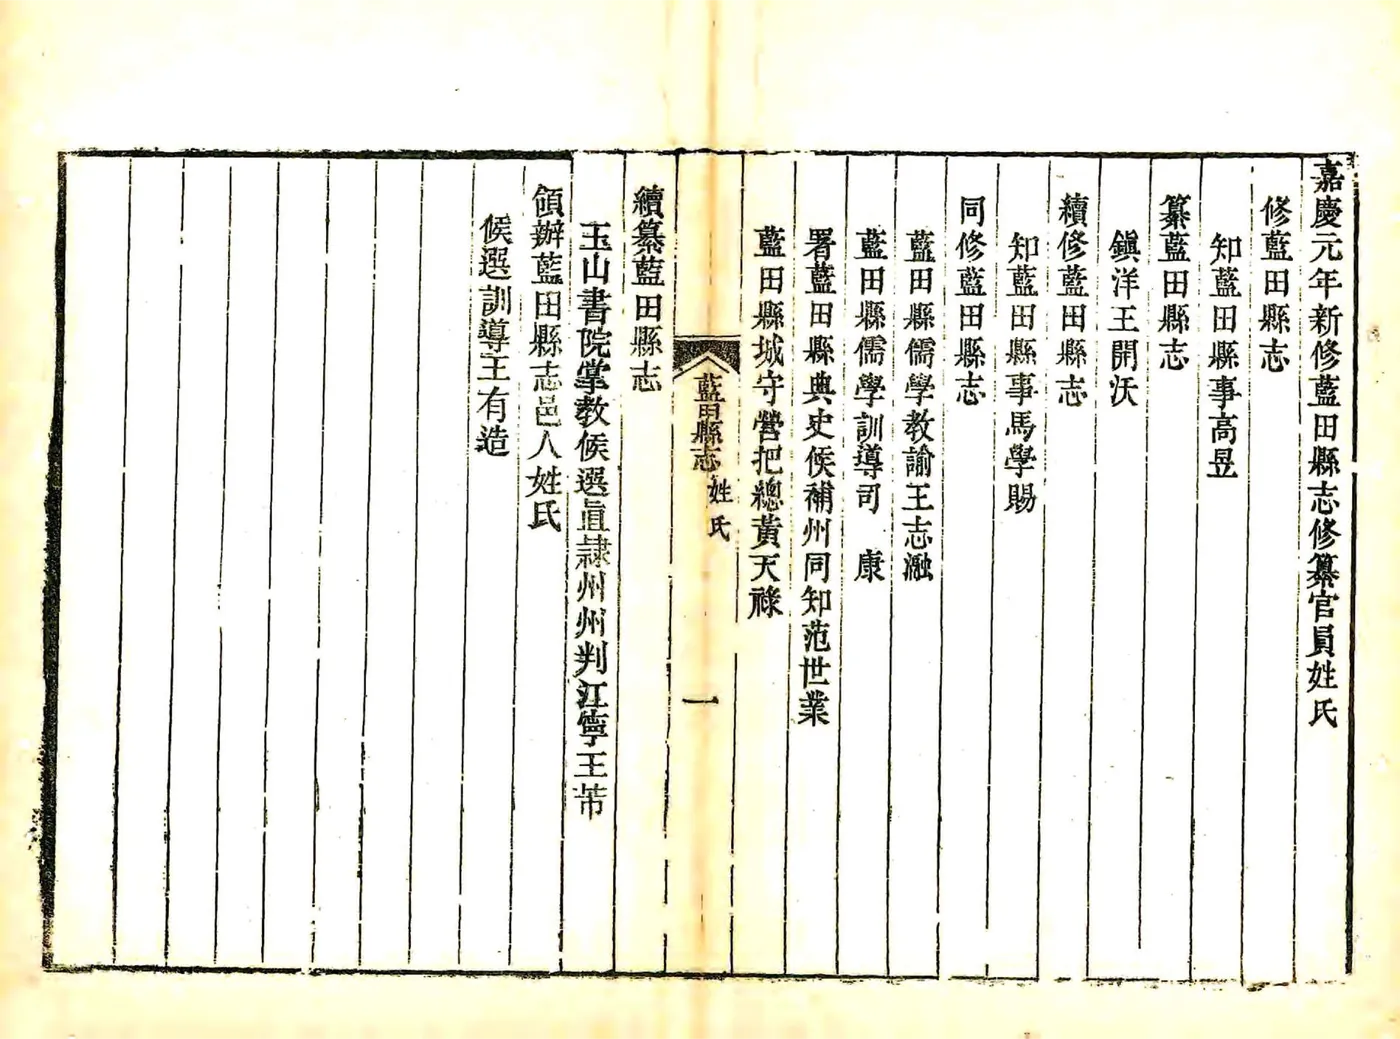 嘉慶元年新修藍田縣志修纂官員姓氏
修藍田縣志
知藍田縣事高昱
纂藍田縣志
鎮洋王開沃
續修藍田縣志
知藍田縣事馬學賜
同修藍田縣志
藍田縣儒學教諭王志瀜
藍田縣儒學訓導司　康
署藍田縣典史候補州同知范世業
藍田縣城守營把總黃天祿
藍田縣志
姓氏
一
續纂藍田縣志
玉山書院掌教候選直隸州州判江寧王芾
領辦藍田縣志邑人姓氏
候選訓導王有造